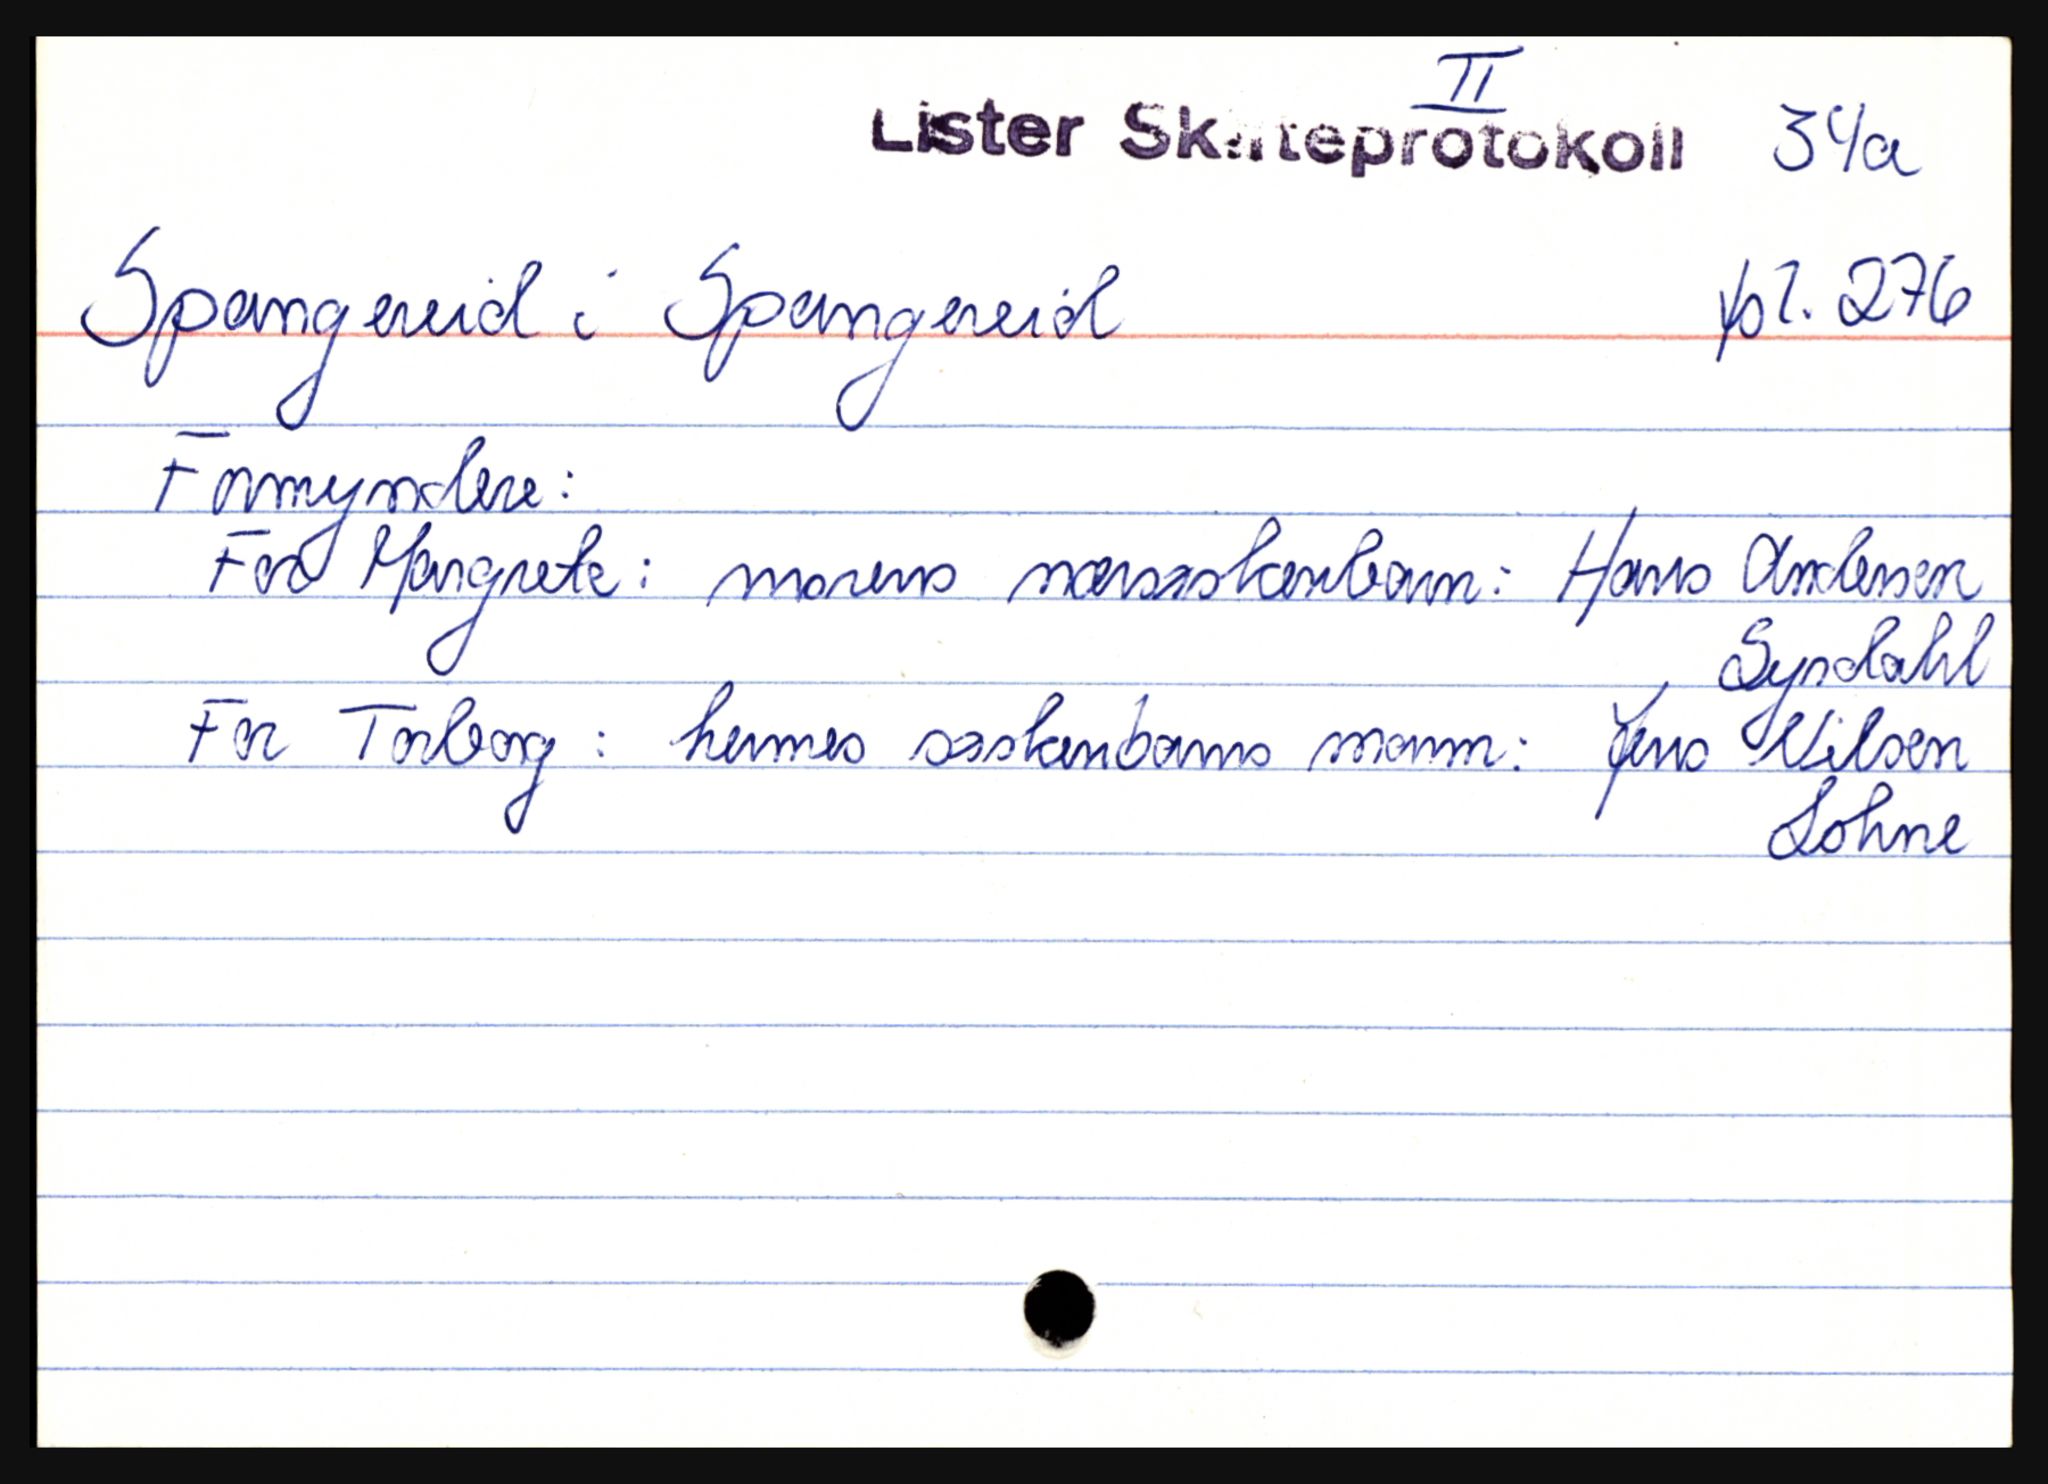 II
Lister Skifteprotokoll 34a
Spangereid i Spangereid fol. 276
Formyndere:
For Margrete: morens næssøskenbarn: Hans Andersen
Syrdahl
For Torborg: hennes søskenbarns mann: Jens Nilsen
Lohne